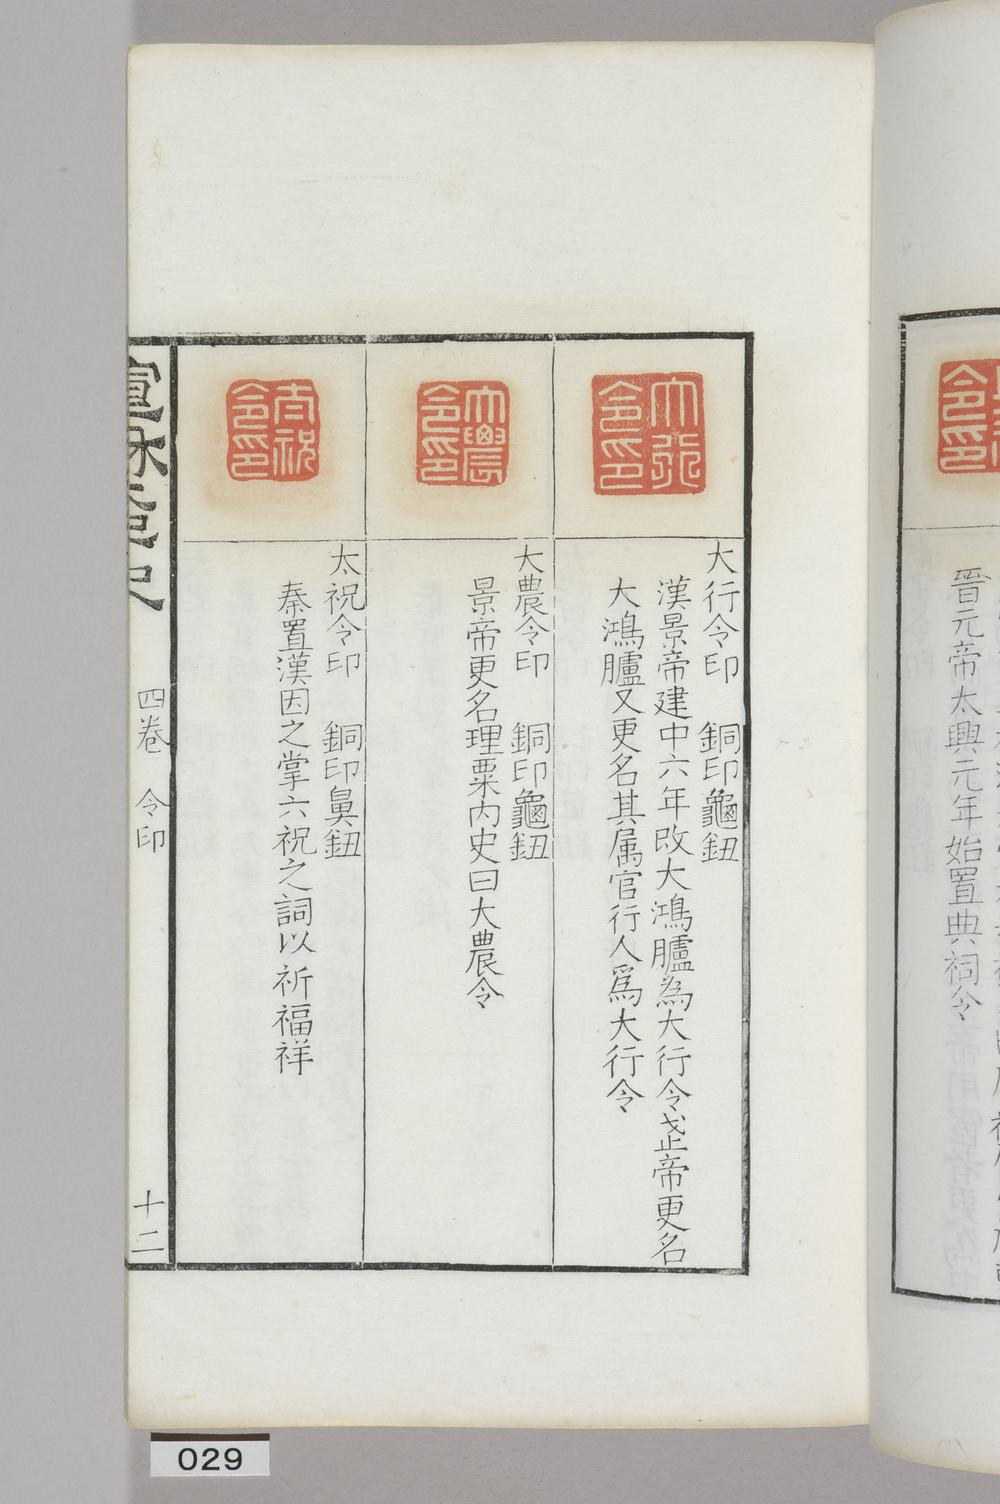 晉元帝太興元年始置典祠令
大行令印
大行令印　銅印龜鈕
漢景帝建中六年改大鴻臚為大行令武帝更名
大鴻臚又更名其属官行人爲大行令
大農令印
大農令印　銅印龜鈕
景帝更名理粟內史曰大農令
太祝令印
太祝令印　銅印鼻鈕
秦置漢因之掌六祝之詞以祈福祥
宣和印史
四卷　令印
十二
029